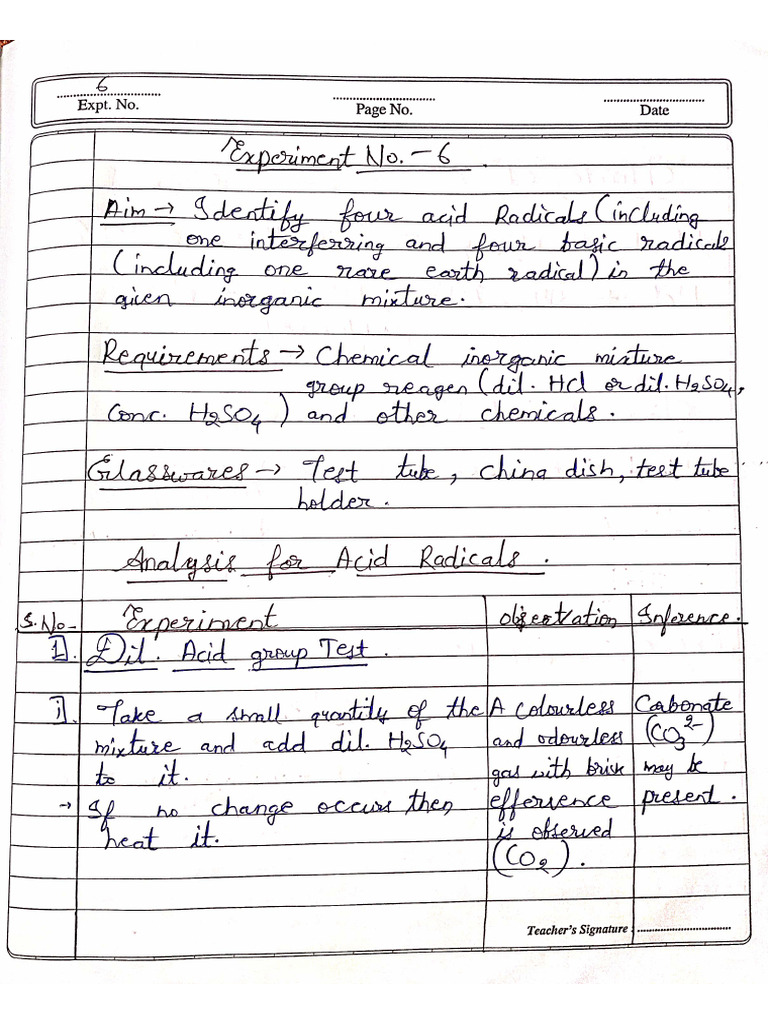 6
Expt. No. Page No. Date
Experiment No. - 6
Aim → Identify four acid Radicals (including
one interferring and four basic radicals
(including one rare earth radical) in the
given inorganic mixture.
Requirements → Chemical inorganic mixture
group reagen (dil. HCl or dil. H2SO4,
Conc. H2SO4) and other chemicals.
Glasswares → Test tube, china dish, test tube
holder.
Analysis for Acid Radicals.
S.No- Experiment Observation Inference.
1]. Dil. Acid group Test.
i]. Take a small quantity of the A colourless Carbonate
mixture and add dil. H2SO4 and odourless (CO3²⁻)
to it. gas with brisk may be
→ If no change occurs then effersence present.
heat it. is observed
(CO2).
Teacher's Signature :